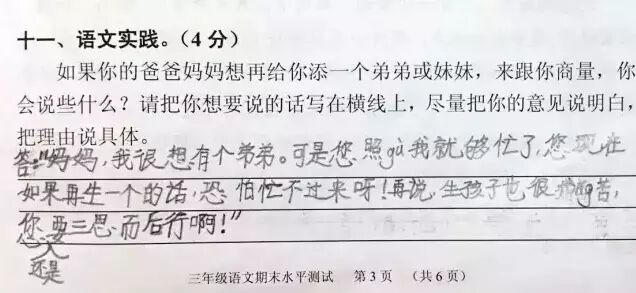 十一、语文实践。（4分）
如果你的爸爸妈妈想再给你添一个弟弟或妹妹，来跟你商量，你
会说些什么？请把你想要说的话写在横线上，尽量把你的意见说明白，
把理由说具体。
答："妈妈，我很想有个弟弟。可是您照gù我就够忙了，您现在
如果再生一个的话，恐怕忙不过来呀！再说，生孩子也很苦，
您要三思而后行啊！"
还是
三年级语文期末水平测试 第3页 （共6页）